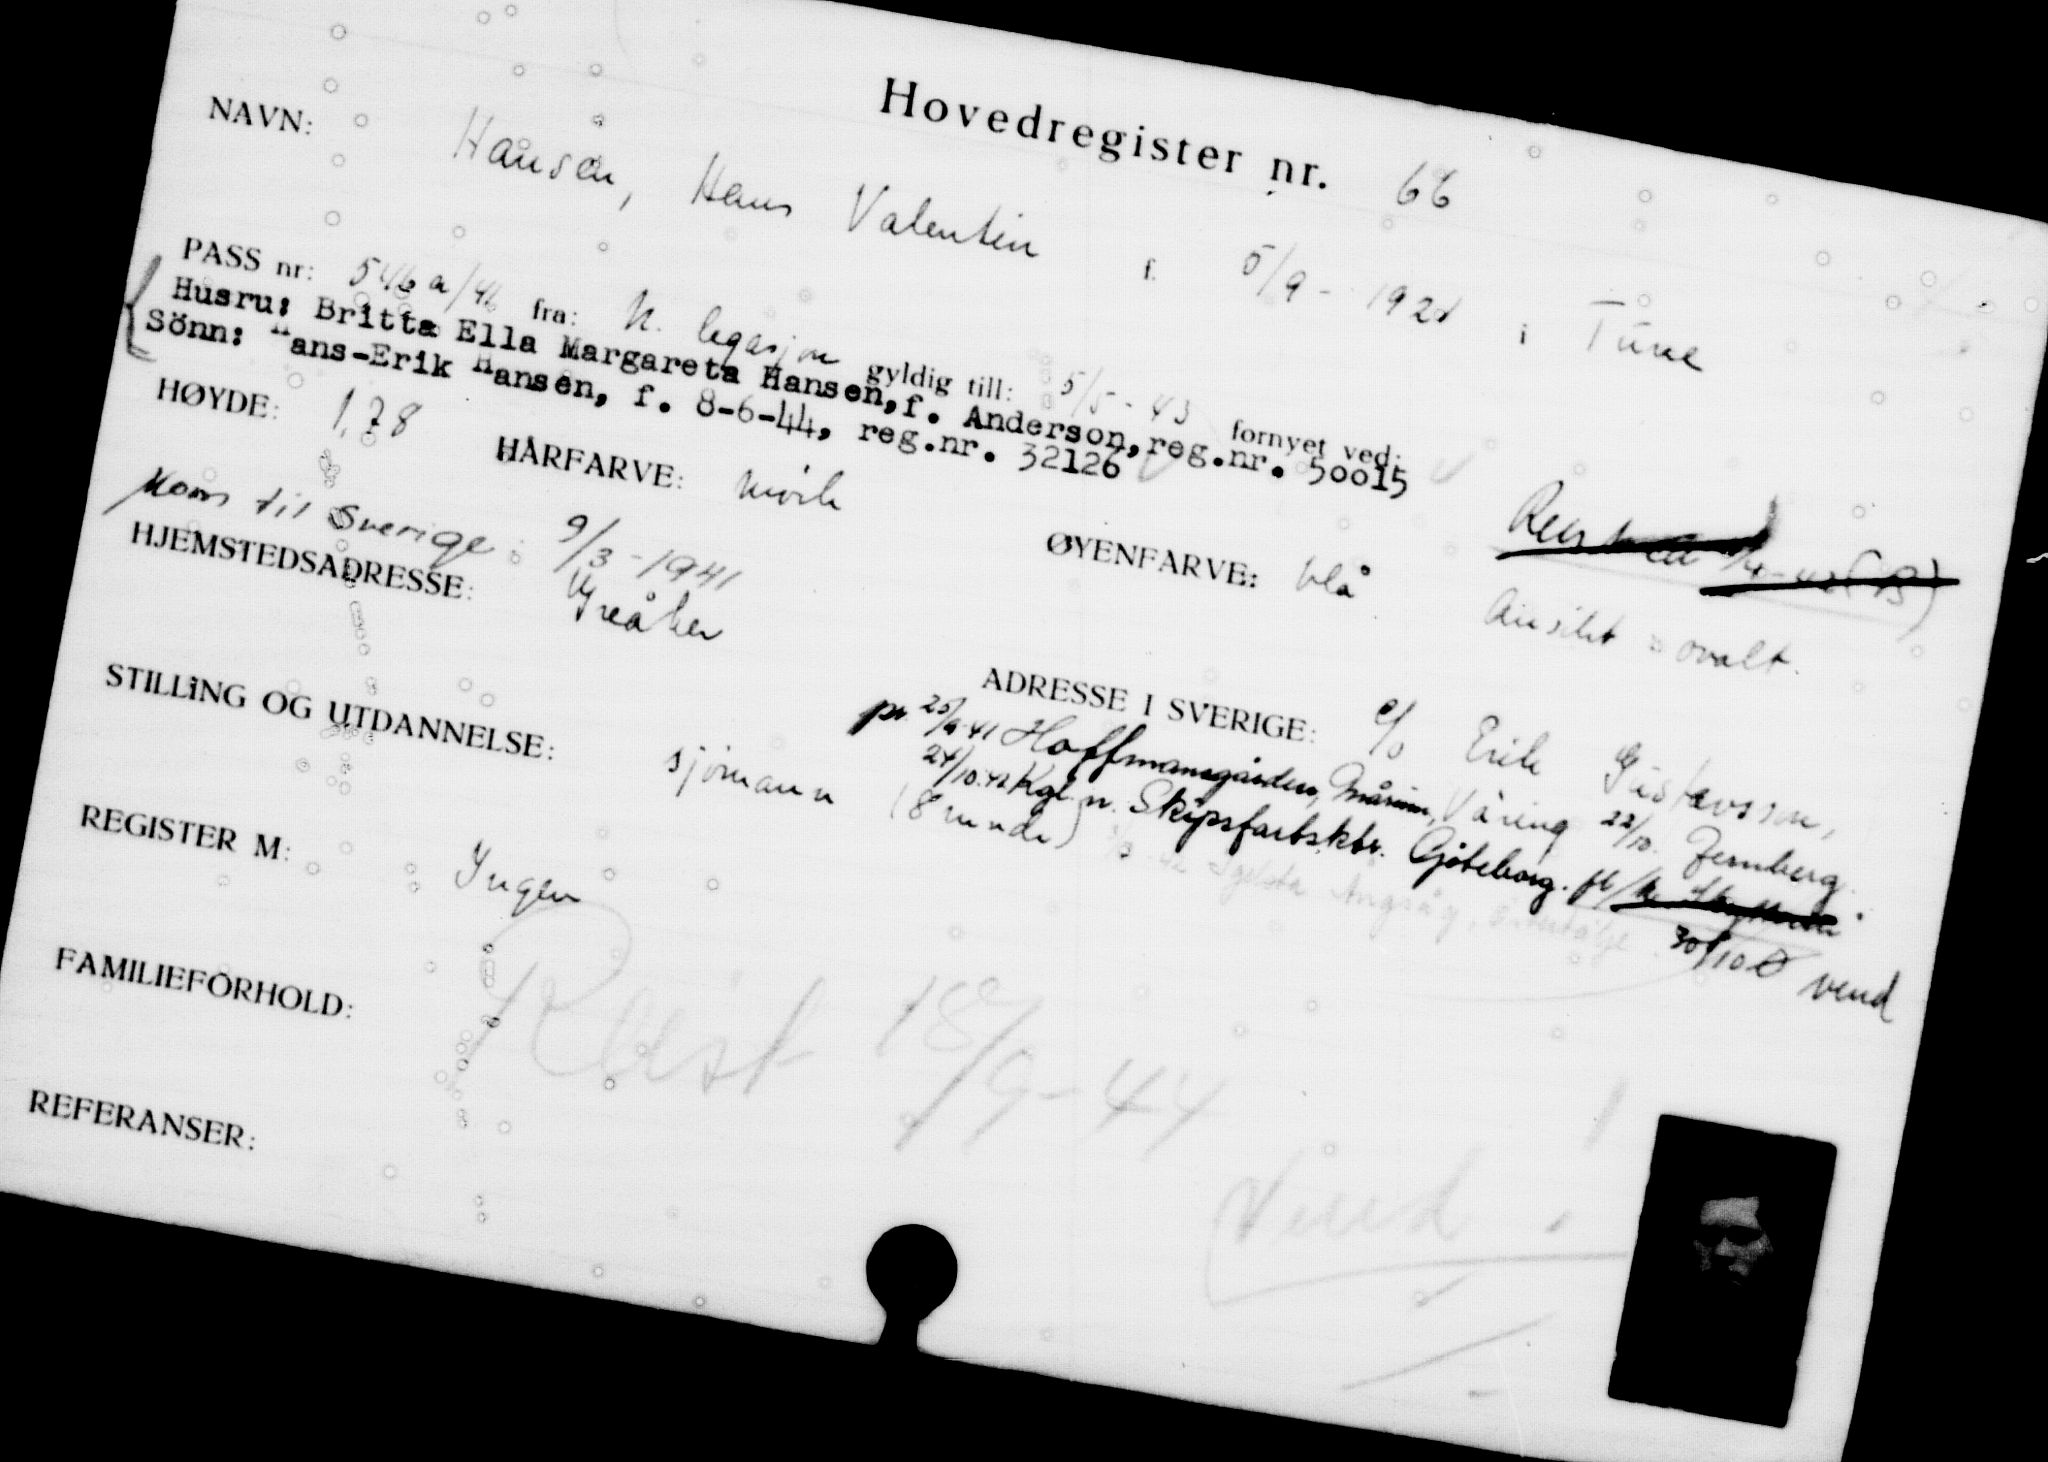 Hovedregister nr. 66
NAVN: Hansen, Hans Valentin f. 5/9 - 1921 i Tune
PASS nr: 546a/41 fra: N. legasjon gyldig till: 5/5 - 43 fornyet ved:
Husru: Britta Ella Margareta Hansen, f. Anderson, reg.nr. 50015
Sönn: Hans-Erik Hansen, f. 8-6-44, reg.nr. 32126
HØYDE: 1,78 HÅRFARVE: mörk ØYENFARVE: blå
Ansikt: ovalt.
Kom til Sverige: 9/3-1941
HJEMSTEDSADRESSE: Greåker
ADRESSE I SVERIGE: c/o Erik Gustavsson,
Väring 22/10. Jernberg.
pr. 25/9-41 Hoffmansgården,
24/10-42 Kgl. n. Skipsfartsktr. Göteborg.
30/10 vend
STILLING OG UTDANNELSE: sjömann (8 mndr)
REGISTER M: Ingen
FAMILIEFORHOLD:
Reist 18/9-44
REFERANSER:
Vend